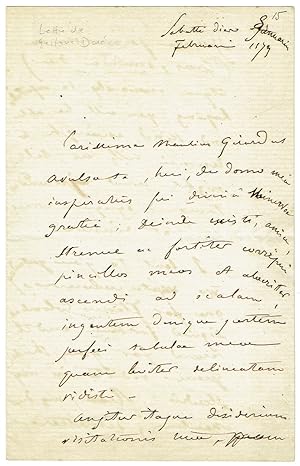 Lettre de
Gustave Doré
15
Sabbti diove
Februarii 1879
Carissima
avulsa te, heri, de domo mea
inspiratus fui divinâ
gratiâ ; deinde amica,
strenue ac fortiter corripui
pincillos meos et alacriter
ascendi ad scalam,
ingentem denique partem
perfeci tabulae meae
quam leviter delineatam
vidisti –
Angitur itaque desiderium
visitationis tuae,